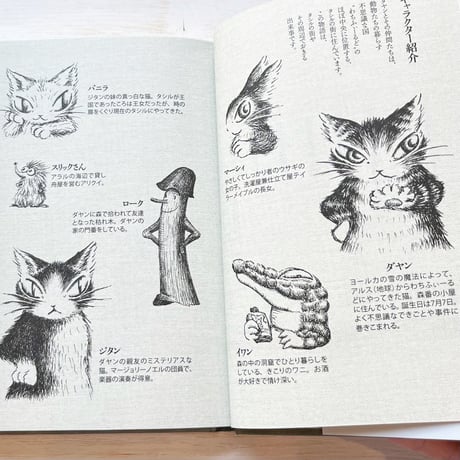 キャラクター紹介
ダヤンとその仲間たちは、
動物たちの暮らす
不思議な国
「わちふぃーるど」の
ほぼ中央に位置する、
タシルの街に住んでいます。
この物語は、
タシルの街や
その周辺でおきる
出来事です。
マーシィ
やさしくてしっかり者のウサギの
女の子。洗濯屋兼仕立て屋テイ
ラーメイプルの長女。
ダヤン
ヨールカの雪の魔法によって、
アルス(地球)からわちふぃーる
どにやってきた猫。森番の小屋
に住んでいる。誕生日は7月7日。
よく不思議なできごとや事件に
巻きこまれる。
イワン
森の中の洞窟でひとり暮らしを
している、きこりのワニ。お酒
が大好きで情け深い。
バニラ
ジタンの妹の真っ白な猫。タシルが王
国であったころは王女だったが、時の
扉をくぐり現在のタシルにやってきた。
スリックさん
アラルの海辺で貸し
舟屋を営むアリクイ。
ローク
ダヤンに森で拾われて友達
となった枯れ木。ダヤンの
家の門番をしている。
ジタン
ダヤンの親友のミステリアスな
猫。マージョリーノエルの団員で、
楽器の演奏が得意。